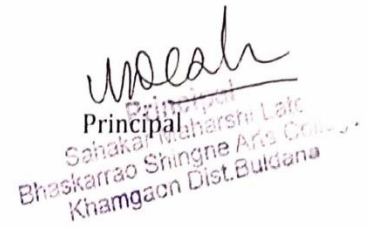 Principal
Principal
Sahakar Maharshi Late
Bhaskarrao Shingne Arts College
Khamgaon Dist.Buldana